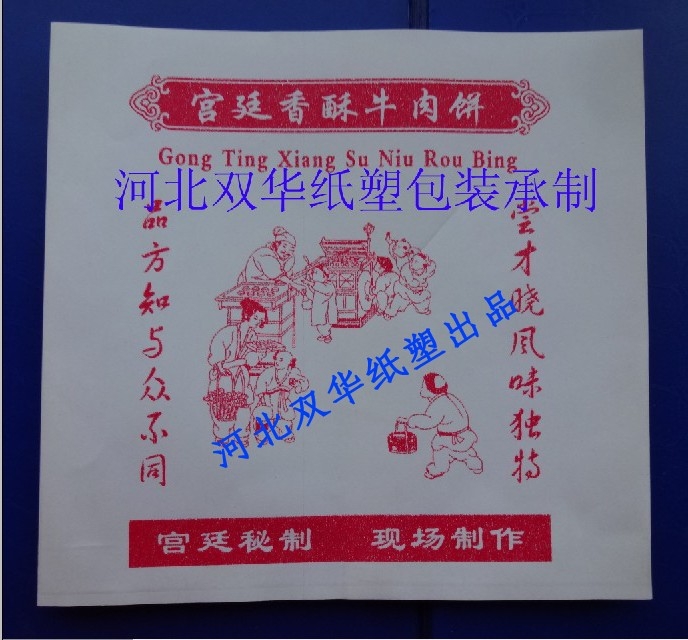 宫廷香酥牛肉饼
Gong Ting Xiang Su Niu Rou Bing
河北双华纸塑包装承制
尝才晓风味独特
品方知与众不同
河北双华纸塑出品
宫廷秘制 现场制作